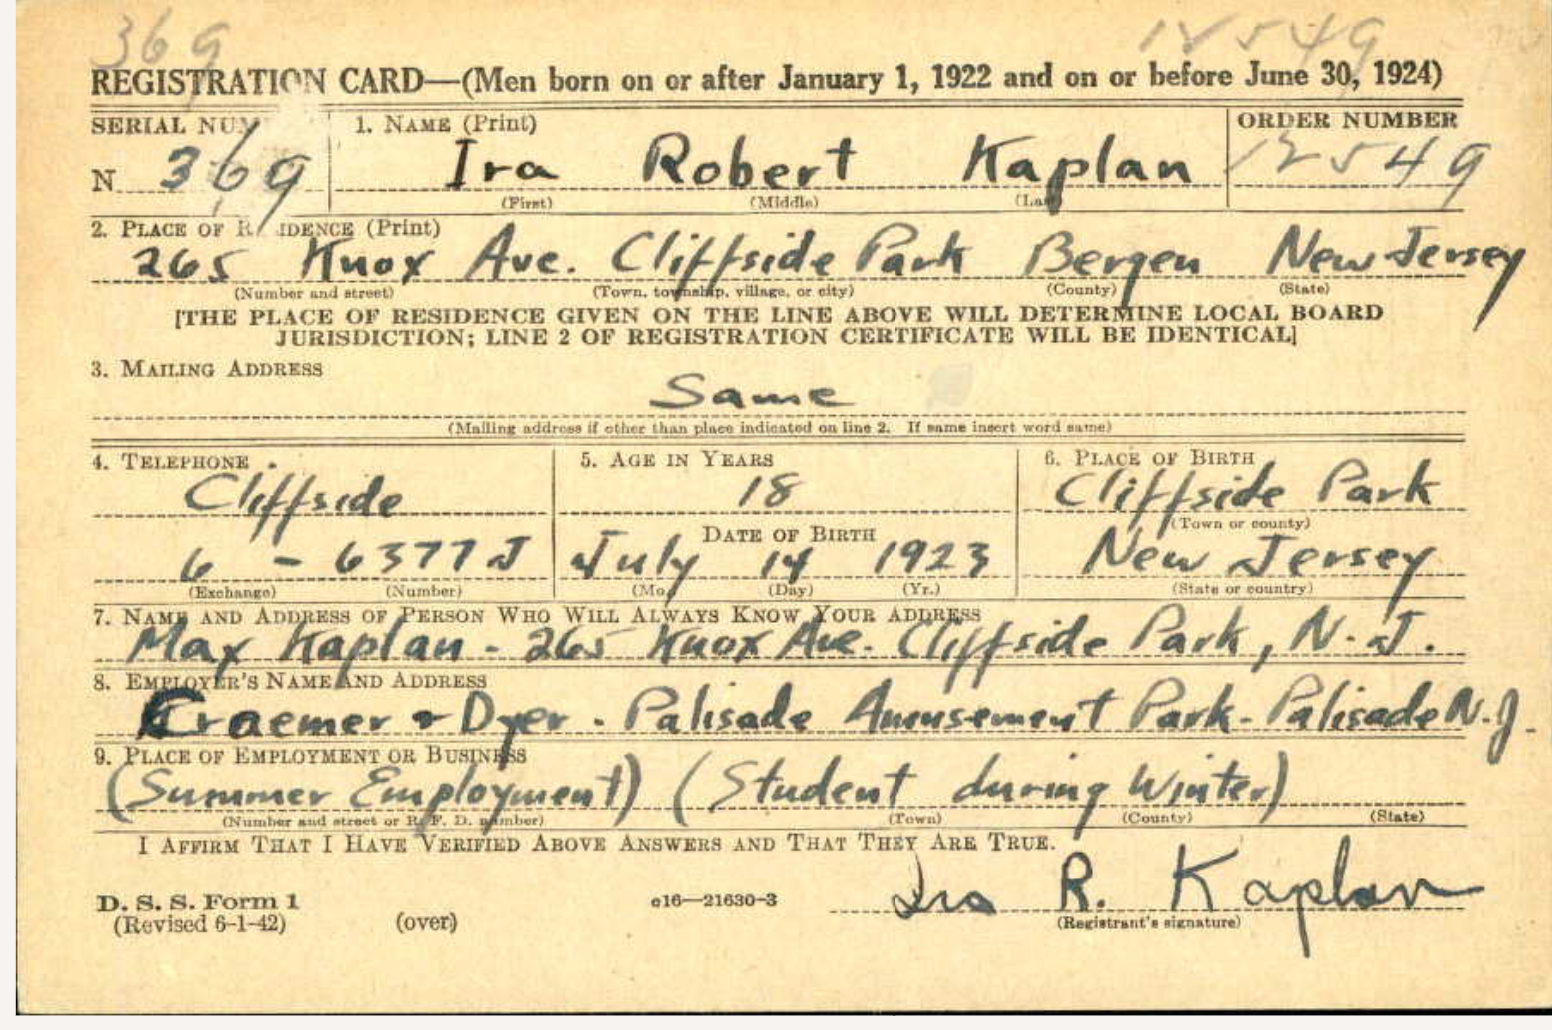 369 12549
REGISTRATION CARD—(Men born on or after January 1, 1922 and on or before June 30, 1924)
SERIAL NUM 1. NAME (Print) ORDER NUMBER
N 369 Ira Robert Kaplan 12549
(First) (Middle) (La
2. PLACE OF R IDENCE (Print)
265 Knox Ave. Cliffside Park Bergen New Jersey
(Number and street) (Town, township, village, or city) (County) (State)
[THE PLACE OF RESIDENCE GIVEN ON THE LINE ABOVE WILL DETERMINE LOCAL BOARD
JURISDICTION; LINE 2 OF REGISTRATION CERTIFICATE WILL BE IDENTICAL]
3. MAILING ADDRESS
Same
(Mailing address if other than place indicated on line 2. If same insert word same)
4. TELEPHONE 5. AGE IN YEARS 6. PLACE OF BIRTH
Cliffside 18 Cliffside Park
(Town or county)
DATE OF BIRTH
6 - 6377 J July 14 1923 New Jersey
(Exchange) (Number) (Mo. (Day) (Yr.) (State or country)
7. NAME AND ADDRESS OF PERSON WHO WILL ALWAYS KNOW YOUR ADDRESS
Max Kaplan - 265 Knox Ave. Cliffside Park, N. J.
8. EMPLOYER'S NAME AND ADDRESS
Kraemer & Dyer - Palisade Amusement Park - Palisade N. J.
9. PLACE OF EMPLOYMENT OR BUSINESS
(Summer Employment) (Student during Winter)
(Number and street or R. F. D. number) (Town) (County) (State)
I AFFIRM THAT I HAVE VERIFIED ABOVE ANSWERS AND THAT THEY ARE TRUE.
D. S. S. Form 1 e16—21630-3 Ira R. Kaplan
(Revised 6-1-42) (over) (Registrant's signature)